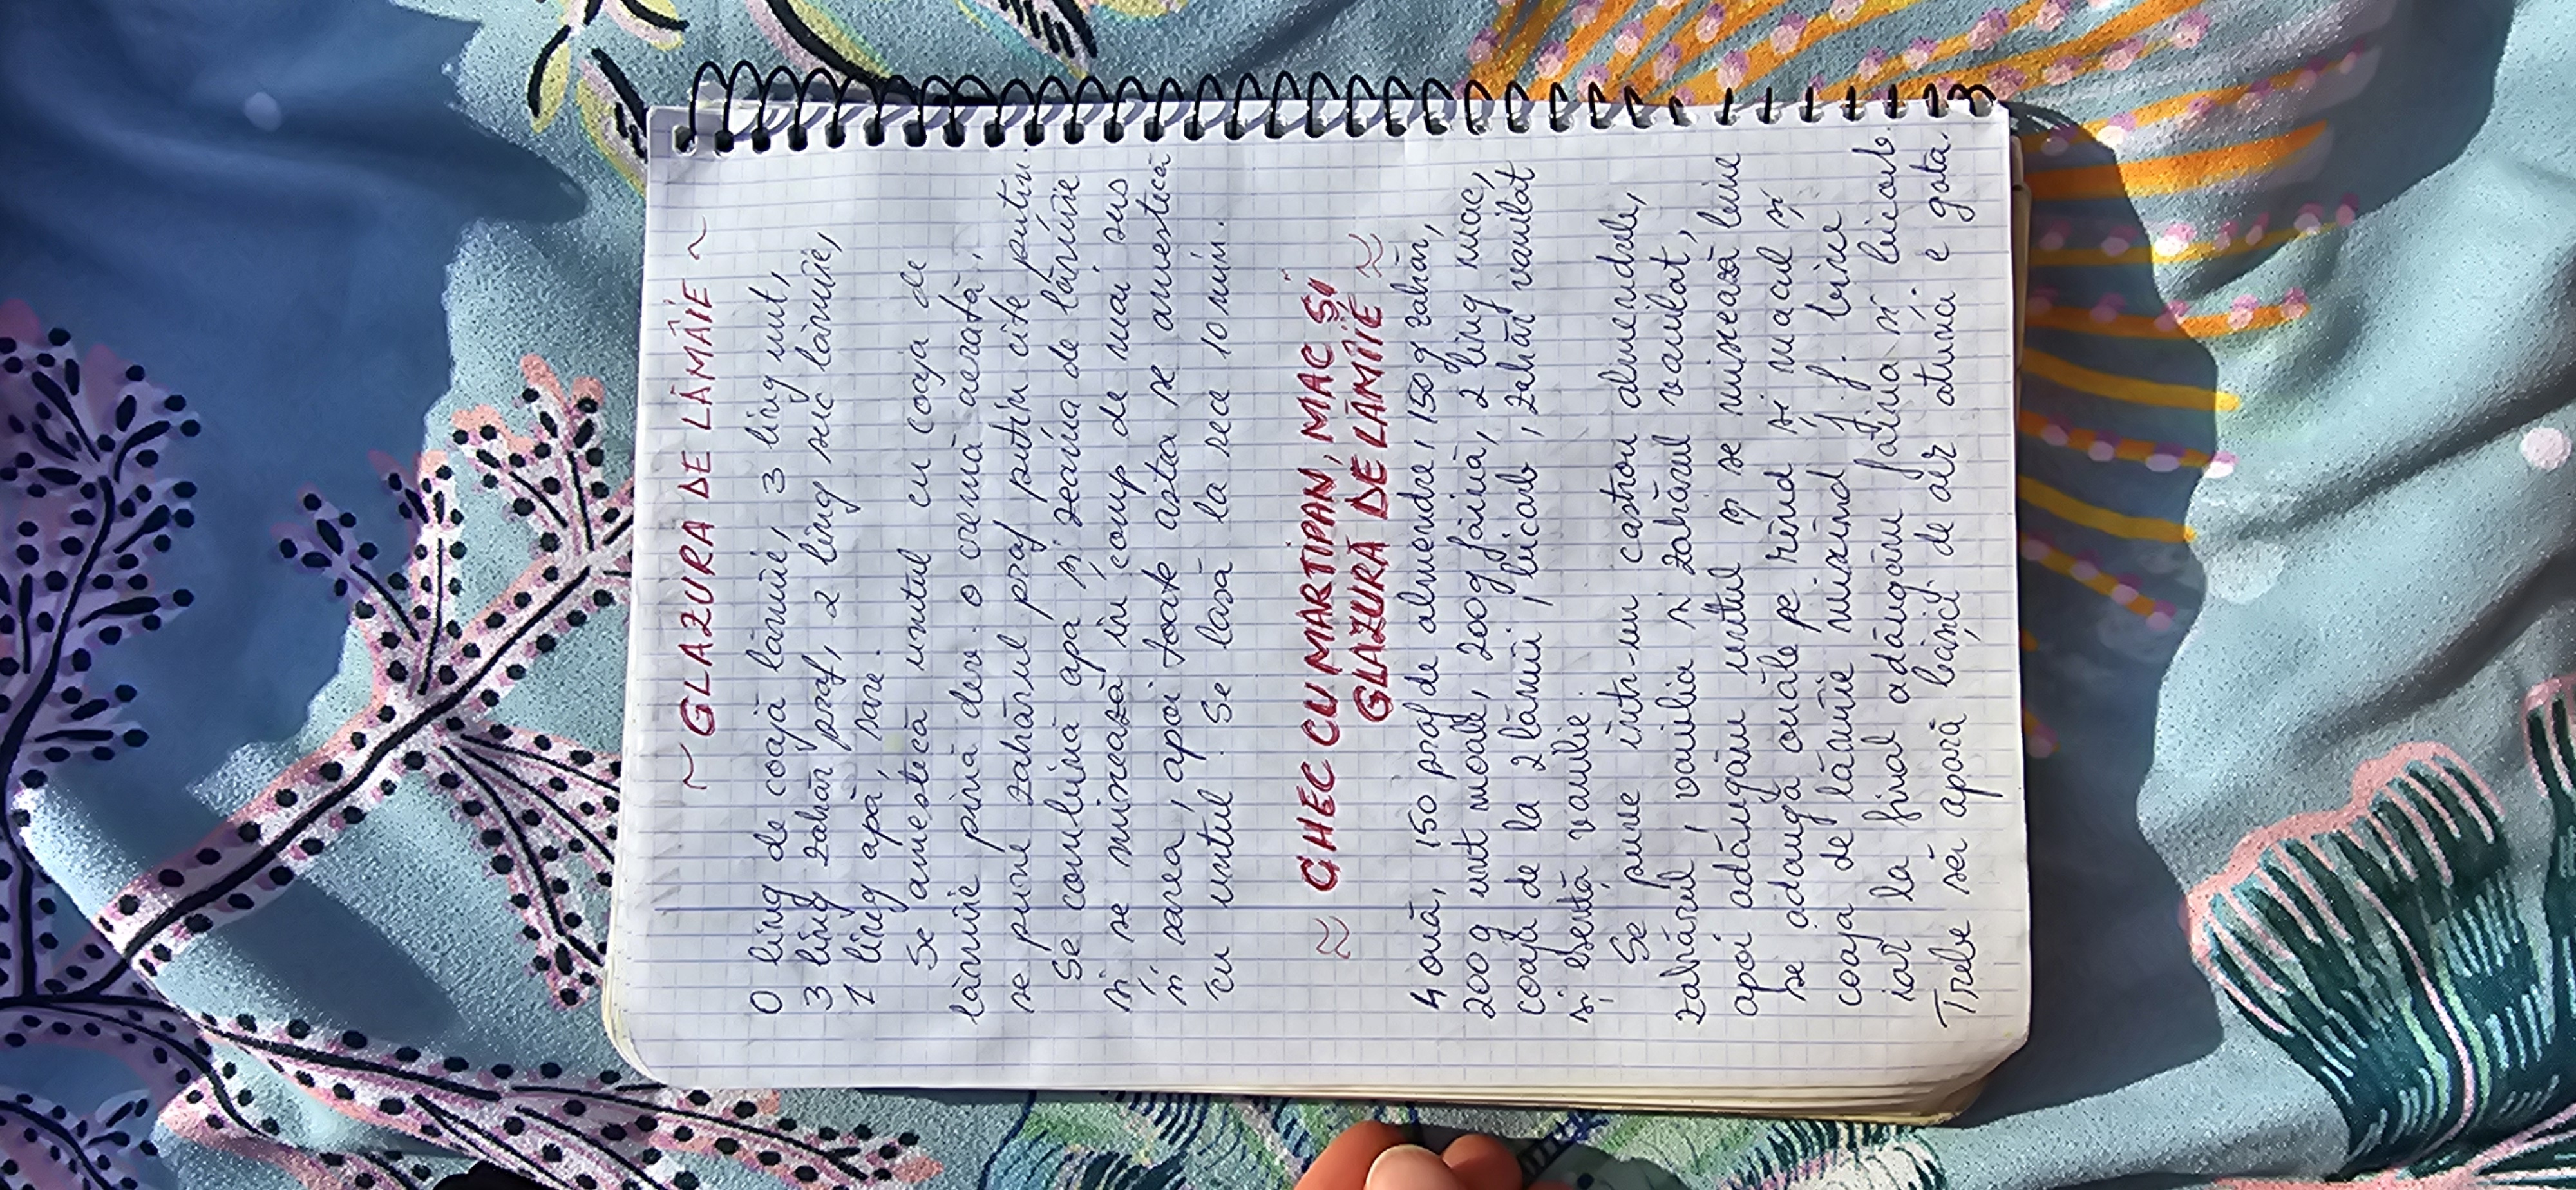 ~ GLAZURĂ DE LĂMÂIE ~
O ling de coajă lămîie, 3 ling unt,
3 ling zahăr praf, 2 ling suc lămîie,
1 ling apă, sare.
Se amestecă untul cu coaja de
lămîie pînă dev. o cremă aerată,
se pune zahărul praf puțin cîte puțin.
Se combină apa și zeama de lămîie
și se mixează în comp de mai sus
și sarea, apoi toate astea se amestecă
cu untul. Se lasă la rece 10 min.
≈ CHEC CU MARTIPAN, MAC ȘI
GLAZURĂ DE LĂMÎIE ≈
4 ouă, 150 praf de almendre, 150 g zahăr,
200 g unt moale, 200g făină, 2 ling mac,
coaja de la 2 lămîi, bicarb, zahăr vanilat
și esență vanilie.
Se pune într-un castron almendrele,
zahărul, vanilia și zahărul vanilat,
apoi adăugăm untul și se mixează bine
se adaugă ouăle pe rînd și macul și
coaja de lămîie mixînd f. f. bine
iar la final adăugăm făina și bicarb.
Trebe să apară bășici de aer atunci e gata.